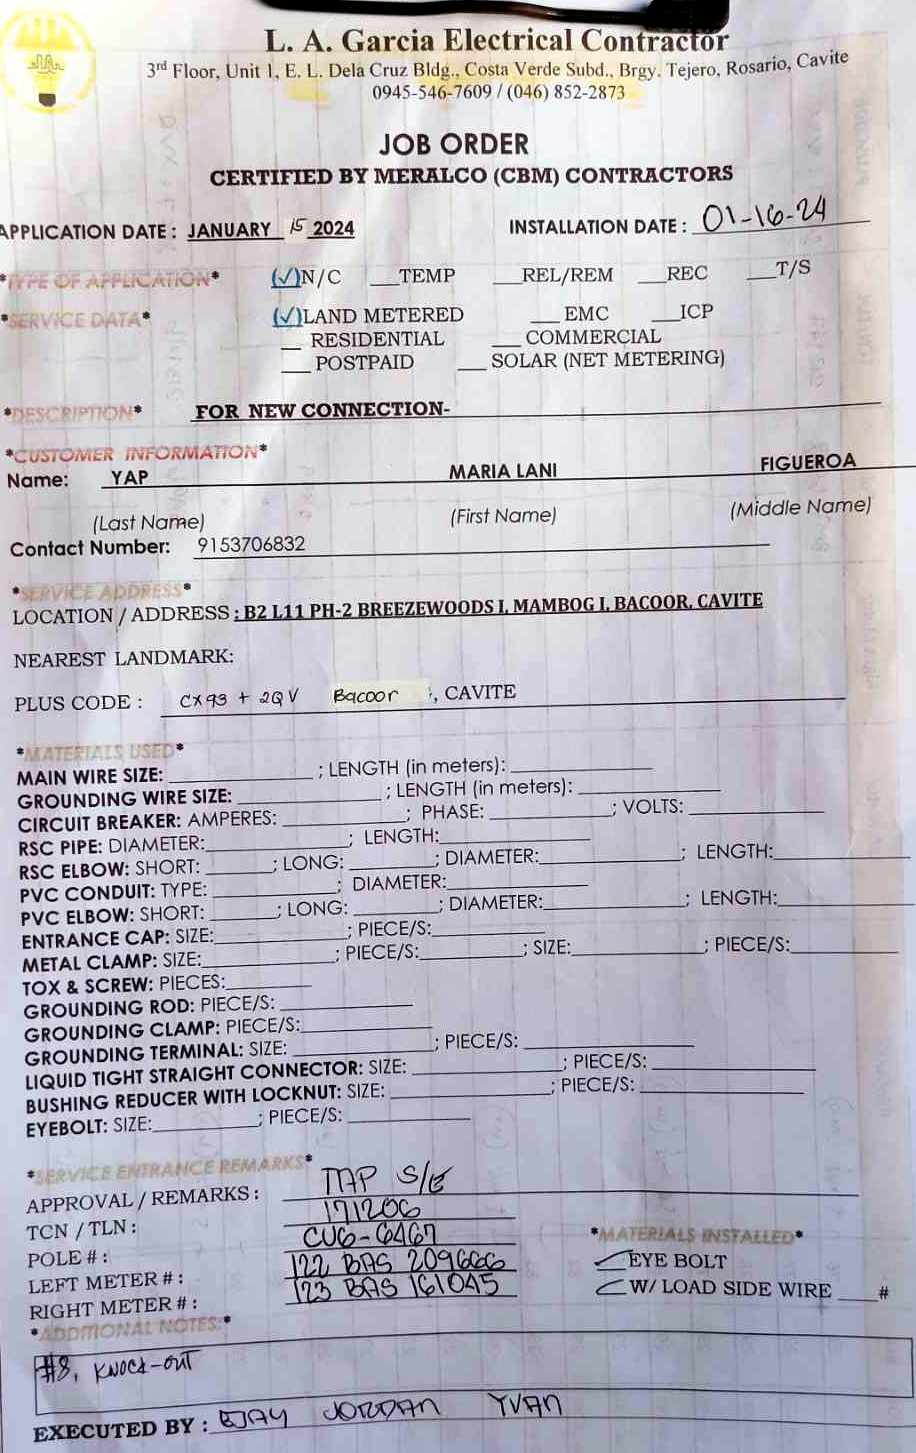 L. A. Garcia Electrical Contractor
3rd Floor, Unit 1, E. L. Dela Cruz Bldg., Costa Verde Subd., Brgy. Tejero, Rosario, Cavite
0945-546-7609 / (046) 852-2873
JOB ORDER
CERTIFIED BY MERALCO (CBM) CONTRACTORS
APPLICATION DATE : JANUARY 15 2024 INSTALLATION DATE : 01-16-24
*TYPE OF APPLICATION* (✓)N/C ___TEMP ___REL/REM ___REC ___T/S
*SERVICE DATA* (✓)LAND METERED ___ EMC ___ICP
__ RESIDENTIAL ___ COMMERCIAL
___ POSTPAID ___ SOLAR (NET METERING)
*DESCRIPTION* FOR NEW CONNECTION-
*CUSTOMER INFORMATION*
Name: YAP MARIA LANI FIGUEROA
(Last Name) (First Name) (Middle Name)
Contact Number: 9153706832
*SERVICE ADDRESS*
LOCATION / ADDRESS : B2 L11 PH-2 BREEZEWOODS I, MAMBOG I, BACOOR, CAVITE
NEAREST LANDMARK:
PLUS CODE : CX93 + 2QV Bacoor , CAVITE
*MATERIALS USED*
MAIN WIRE SIZE: ______ ; LENGTH (in meters): ______
GROUNDING WIRE SIZE: ______ ; LENGTH (in meters): ______
CIRCUIT BREAKER: AMPERES: ______ ; PHASE: ______ ; VOLTS: ______
RSC PIPE: DIAMETER: ______ ; LENGTH: ______
RSC ELBOW: SHORT: ______ ; LONG: ______ ; DIAMETER: ______ ; LENGTH: ______
PVC CONDUIT: TYPE: ______ ; DIAMETER: ______
PVC ELBOW: SHORT: ______ ; LONG: ______ ; DIAMETER: ______ ; LENGTH: ______
ENTRANCE CAP: SIZE: ______ ; PIECE/S: ______
METAL CLAMP: SIZE: ______ ; PIECE/S: ______ ; SIZE: ______ ; PIECE/S: ______
TOX & SCREW: PIECES: ______
GROUNDING ROD: PIECE/S: ______
GROUNDING CLAMP: PIECE/S: ______
GROUNDING TERMINAL: SIZE: ______ ; PIECE/S: ______
LIQUID TIGHT STRAIGHT CONNECTOR: SIZE: ______ ; PIECE/S: ______
BUSHING REDUCER WITH LOCKNUT: SIZE: ______ ; PIECE/S: ______
EYEBOLT: SIZE: ______ ; PIECE/S: ______
*SERVICE ENTRANCE REMARKS*
APPROVAL / REMARKS : TAP S/E
TCN / TLN : 171206
POLE # : CU6-6467 *MATERIALS INSTALLED*
LEFT METER # : 122 BAS 209666 EYE BOLT
RIGHT METER # : 123 BAS 161045 W/ LOAD SIDE WIRE ____#
*ADDITIONAL NOTES:*
#8, KNOCK-OUT
EXECUTED BY : EJAY JORDAN YVAN